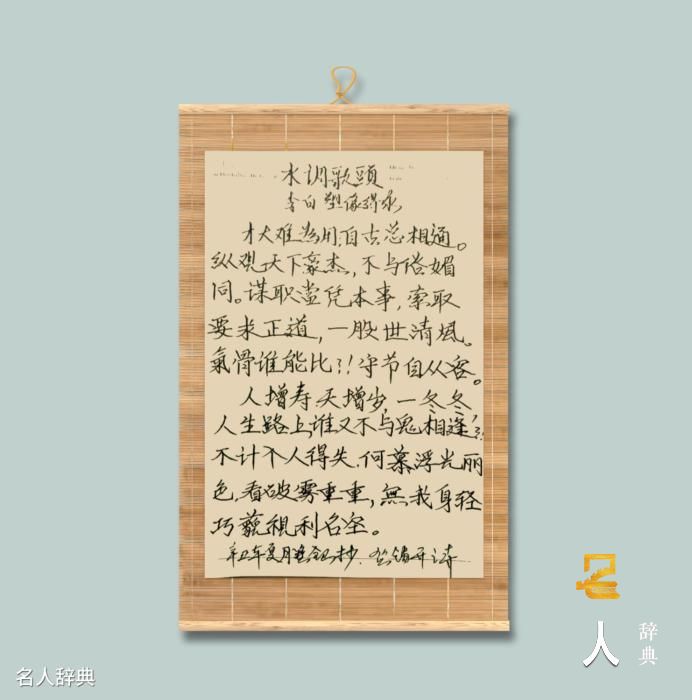 水调歌頭
李白塑像得来
才大难为用,自古总相通。
纵观天下豪杰,不与俗媚
同。谋职岂凭本事,索取
要求正道,一股世清風。
氣骨谁能比?!守节自从容。
人增寿,天增岁,一冬冬
人生路上谁又不与鬼相逢?!
不计个人得失,何慕浮光丽
色,看破雾重重,無我身轻
巧,藐視利名空。
辛丑年夏月
名人辞典
名
人
辞典